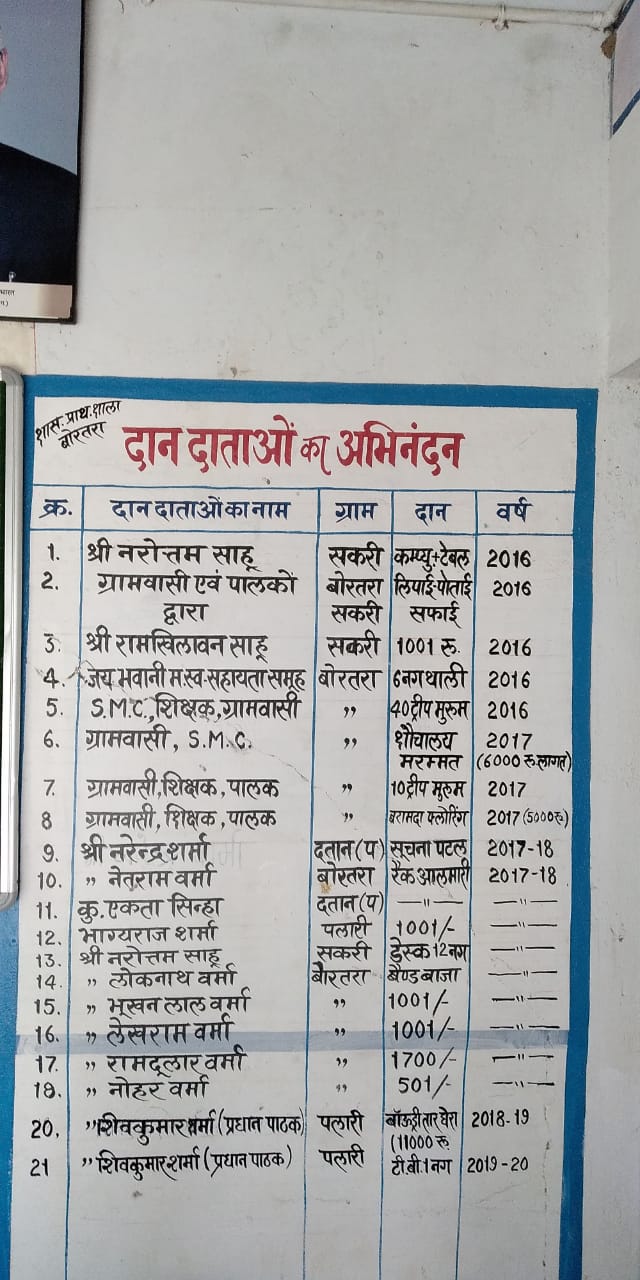 भारत
शास. प्राथ. शाला
बोरतरा
दान दाताओं का अभिनंदन
क्र. दान दाताओं का नाम ग्राम दान वर्ष
1. श्री नरोत्तम साहू सकरी कम्प्यु+टेबल 2016
2. ग्रामवासी एवं पालकों बोरतरा लिपाई-पोताई 2016
द्वारा सकरी सफाई
3. श्री रामखिलावन साहू सकरी 1001 रु. 2016
4. जय भवानी म.स्व.सहायता समूह बोरतरा 6 नग थाली 2016
5. S.M.C., शिक्षक, ग्रामवासी ,, 40 ट्रीप मुरुम 2016
6. ग्रामवासी, S.M.C. ,, शौचालय 2017
मरम्मत (6000 रु. लागत)
7. ग्रामवासी, शिक्षक, पालक ,, 10 ट्रीप मुरुम 2017
8 ग्रामवासी, शिक्षक, पालक ,, बरामदा फ्लोरिंग 2017 (5000 रु)
9. श्री नरेन्द्र शर्मा दतान (प) सूचना पटल 2017-18
10. ,, नेतुराम वर्मा बोरतरा रैक आलमारी 2017-18
11. कु. एकता सिन्हा दतान (प) —,,— —,,—
12. भाग्यराज शर्मा पलारी 1001/- —,,—
13. श्री नरोत्तम साहू सकरी डेस्क 12 नग —,,—
14. ,, लोकनाथ वर्मा बोरतरा बैण्ड बाजा —,,—
15. ,, भूखन लाल वर्मा ,, 1001/- —,,—
16. ,, लेखराम वर्मा ,, 1001/- —,,—
17. ,, रामदूलार वर्मा ,, 1700/- —,,—
18. ,, नोहर वर्मा ,, 501/- —,,—
20. ,, शिवकुमार शर्मा (प्रधान पाठक) पलारी बॉऊड्री तार घेरा 2018-19
(11000 रु.
21 ,, शिवकुमार शर्मा (प्रधान पाठक) पलारी टी.बी. 1 नग 2019-20